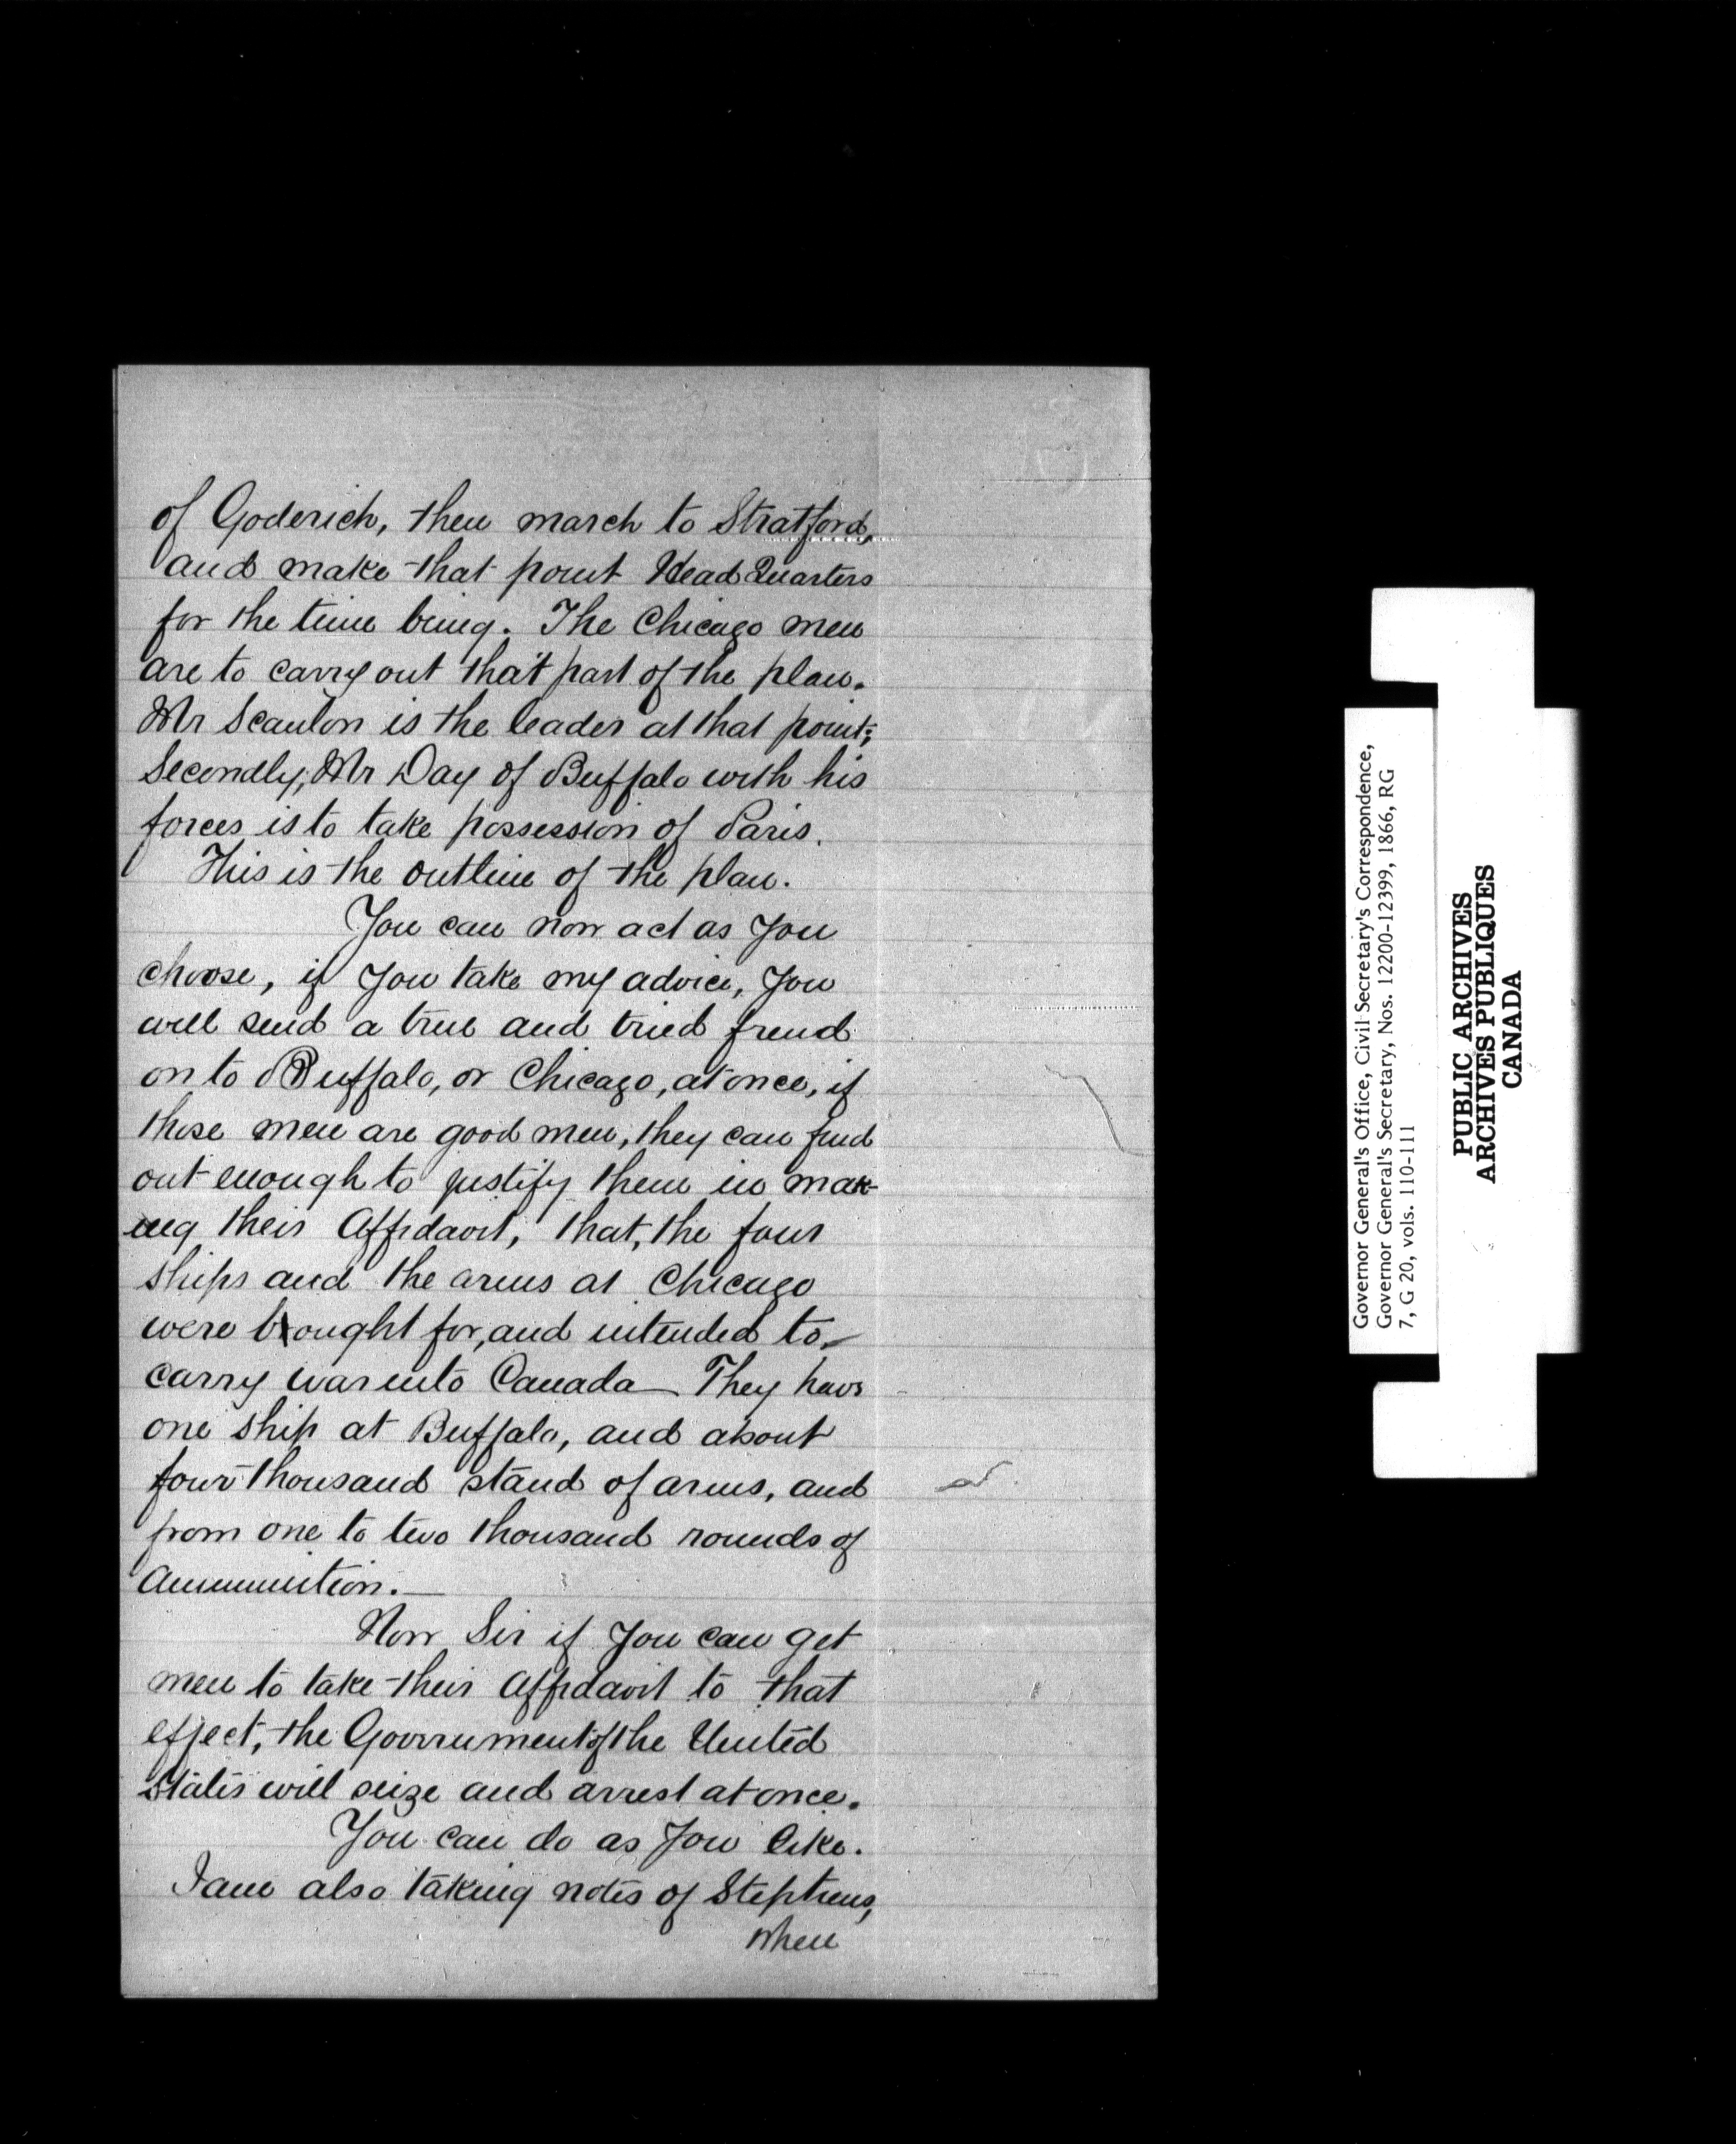 of Goderich, then march to Stratford,
and make that point Head Quarters
for the time being. The Chicago men
are to carry out that part of the plan.
Mr Scanlon is the leader at that point;
Secondly, Mr Day of Buffalo with his
forces is to take possession of Paris.
This is the outline of the plan.
You can now act as you
choose, if you take my advice, you
will send a true and tried friend
on to Buffalo, or Chicago, at once, if
these men are good men, they can find
out enough to justify them in mak-
ing their Affidavit, that, the four
ships and the arms at Chicago
were bought for, and intended to
carry war into Canada — They have
one ship at Buffalo, and about
four thousand stand of arms, and
from one to two thousand rounds of
Ammunition. —
Now Sir if you can get
men to take their affidavit to that
effect, the Government of the United
States will seize and arrest at once.
You can do as you like.
I am also taking notes of Stephens,
when
Governor General's Office, Civil Secretary's Correspondence,
Governor General's Secretary, Nos. 12200-12399, 1866, RG
7, G 20, vols. 110-111
PUBLIC ARCHIVES
ARCHIVES PUBLIQUES
CANADA